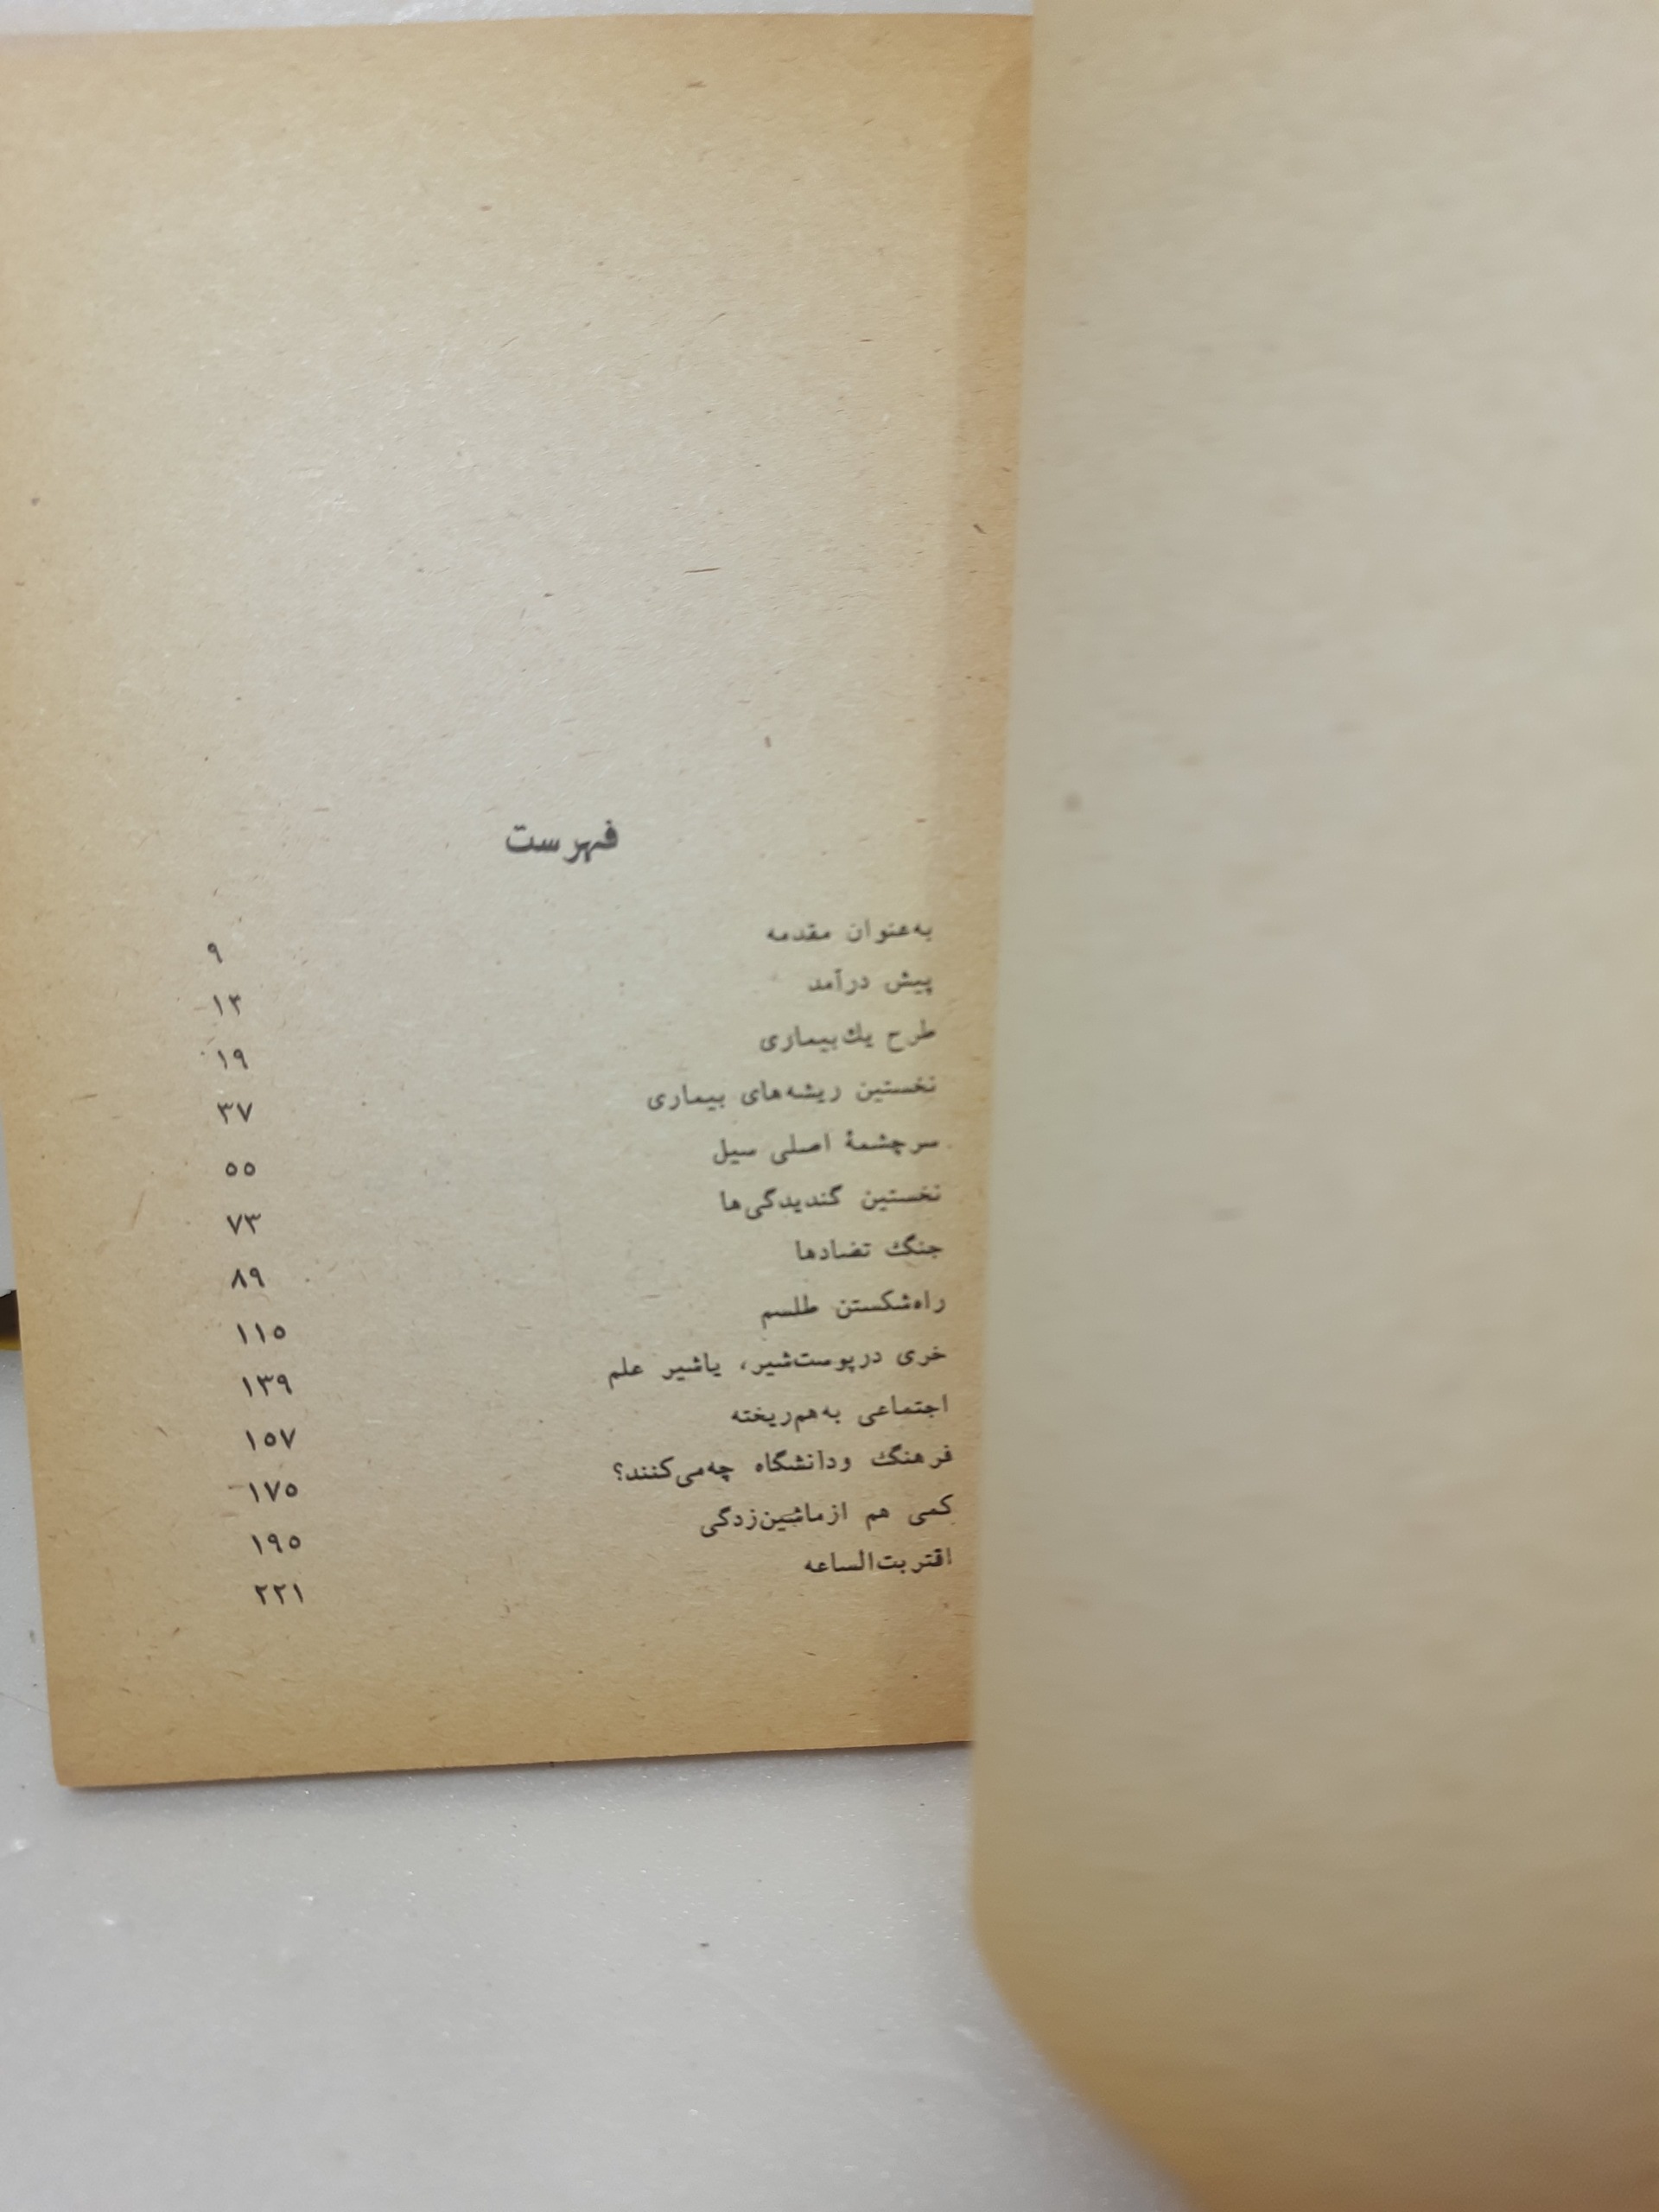 فهرست
به‌عنوان مقدمه ۹
پیش درآمد ۱۳
طرح یك‌بیماری ۱۹
نخستین ریشه‌های بیماری ۳۷
سرچشمهٔ اصلی سیل ۵۵
نخستین گندیدگی‌ها ۷۳
جنگ تضادها ۸۹
راه‌شکستن طلسم ۱۱۵
خری درپوست‌شیر، یاشیر علم ۱۳۹
اجتماعی به‌هم‌ریخته ۱۵۷
فرهنگ ودانشگاه چه‌می‌کنند؟ ۱۷۵
کمی هم ازماشین‌زدگی ۱۹۵
اقتربت‌الساعه ۲۲۱